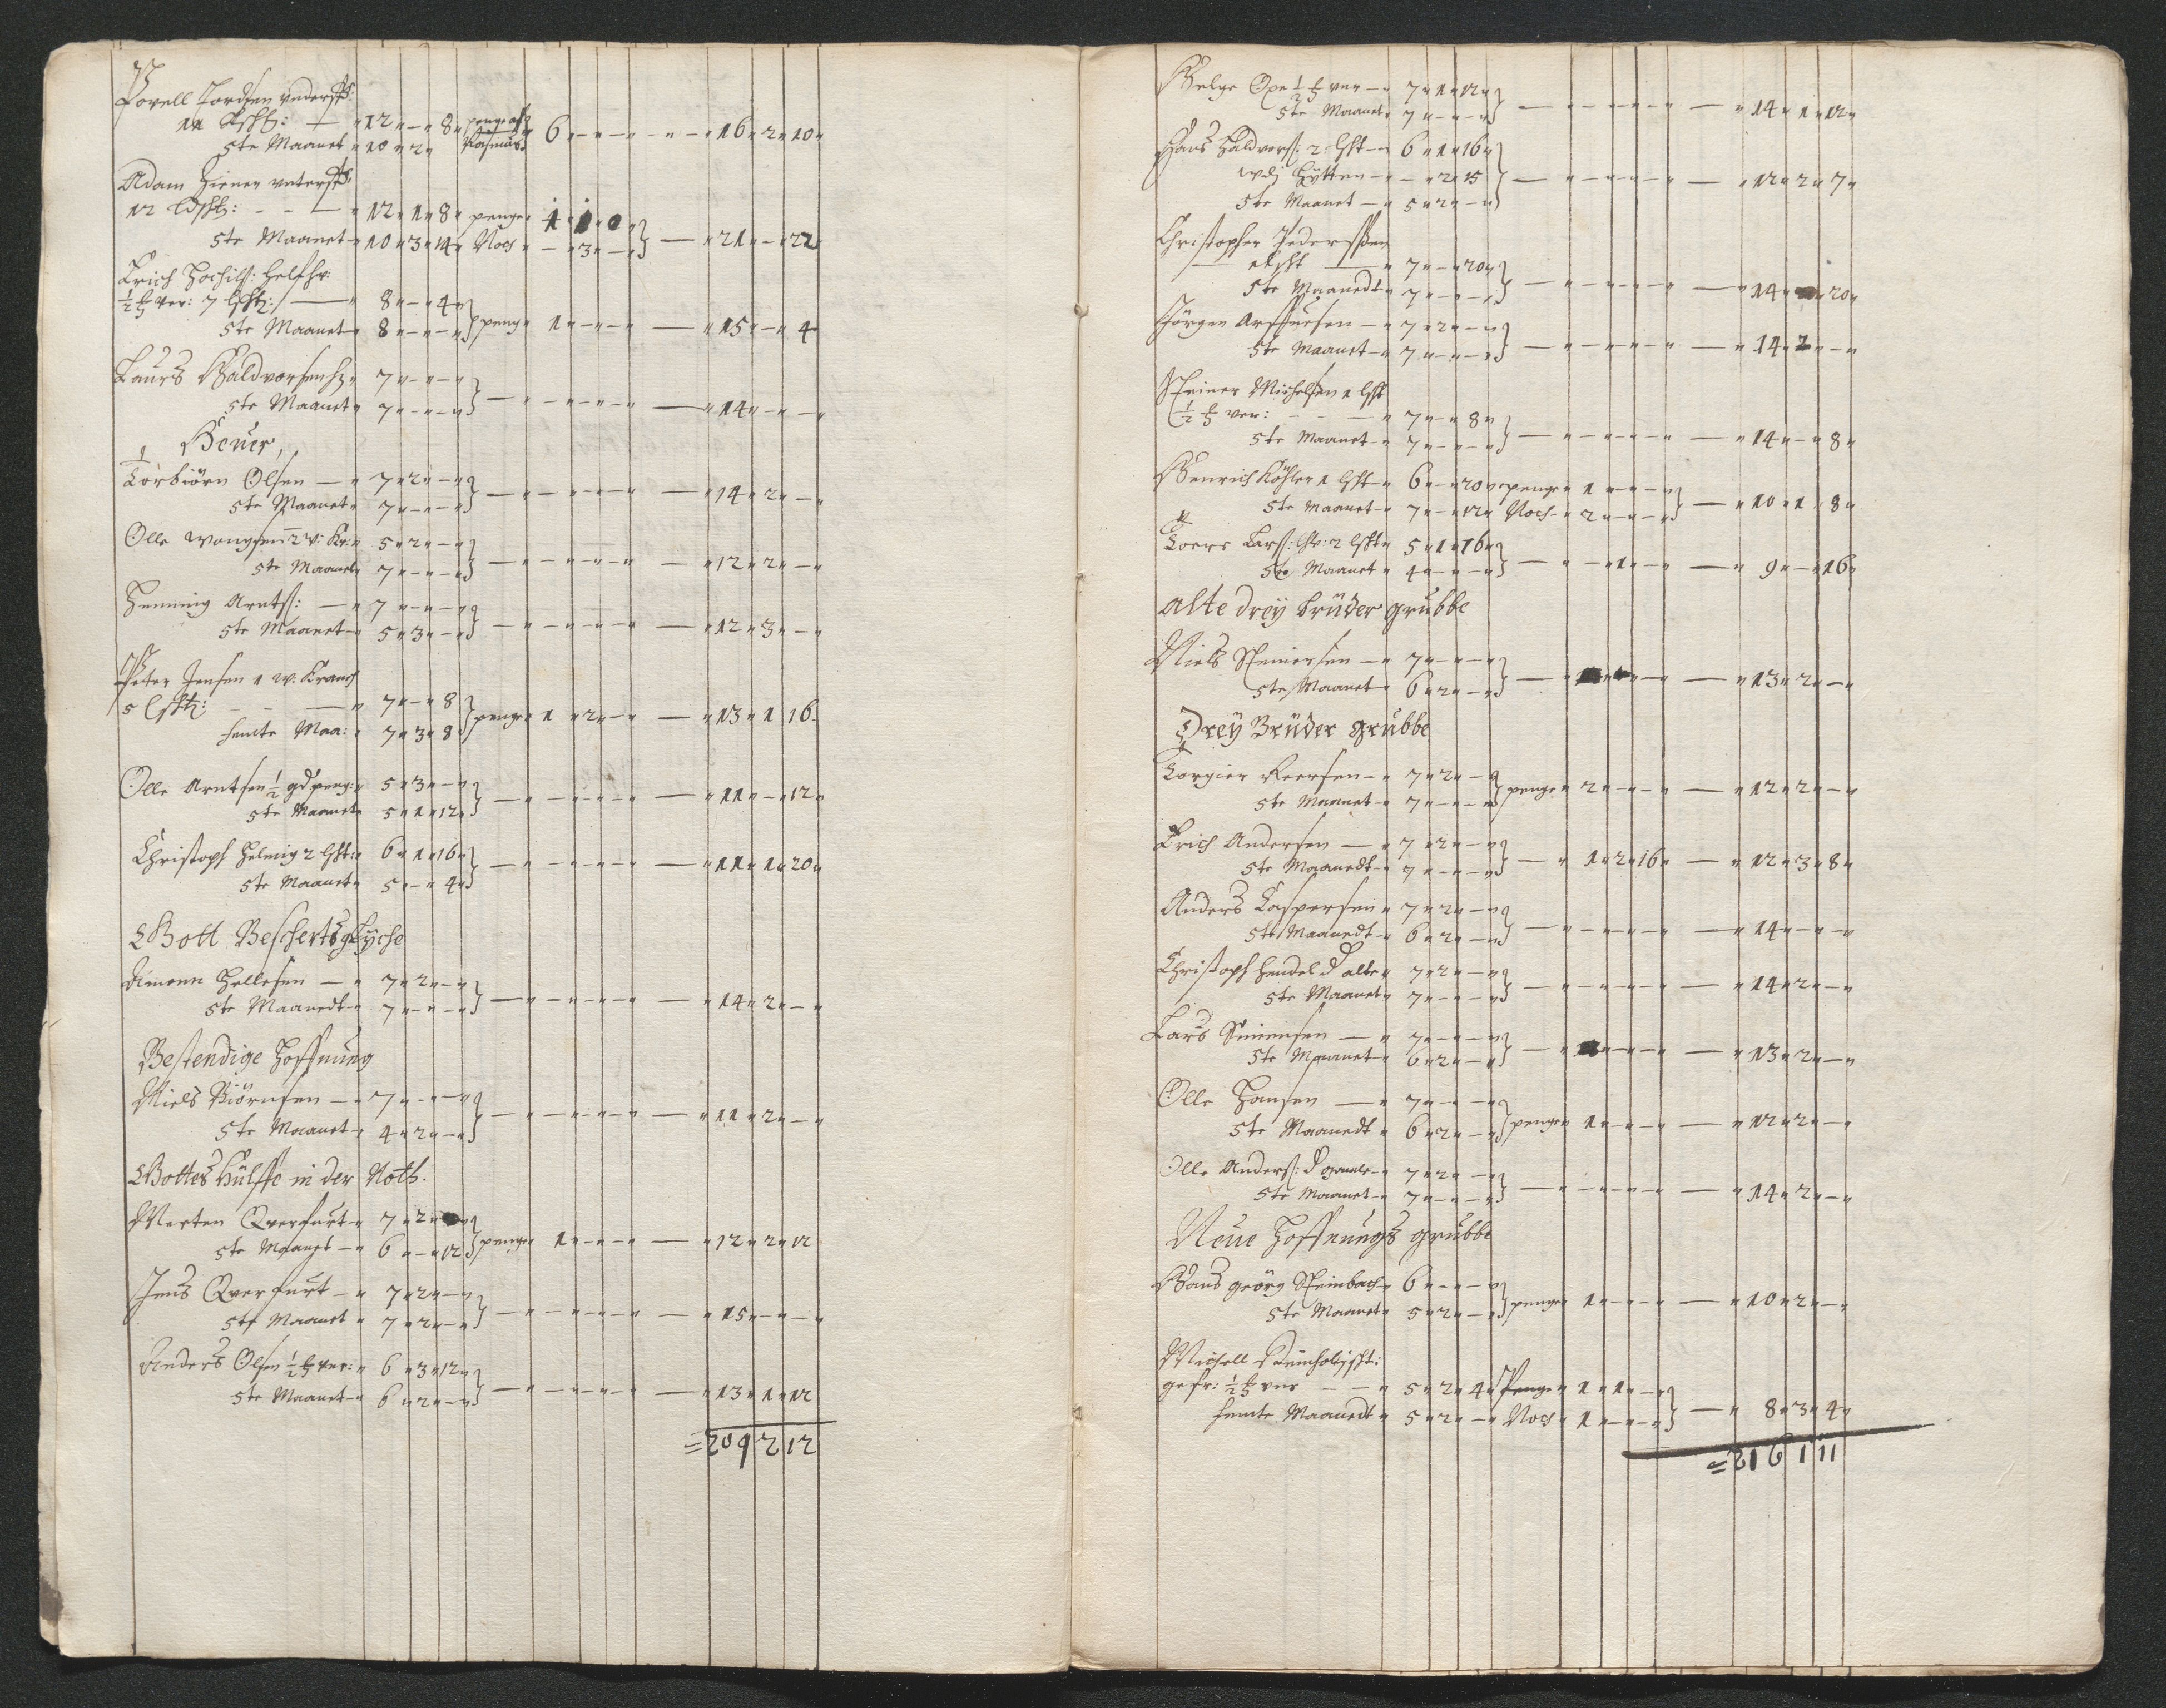 Povell Tordsen underst:
11 lchst: — " 12 " — " 8 " penge af 6 " — " — " — " — " 16 " 2 " 10 "
5te Maanet " 10 " 2 " Rasmus
Adam Ziener unterst:
12 lchst: — " 12 " 1 " 8 " penge 1 " 1 " 0 "
5te Maanet " 10 " 3 " 14 " Noch " — " 3 " — " — " 21 " — " 22
Erich
1/2 ver: 7 lcht: — " 8 " — " 4 "
5te Maanet " 8 " — " — " penge 1 " — " — " — " 15 " — " 4
Laurs Haldvorsen " 7 " — " — "
5te Maanet " 7 " — " — " — " — " — " — " — " 14 " — " — "
Heuer,
Torbiörn Olsen — " 7 " 2 " — "
5te Maanet " 7 " — " — " — " — " — " — " — " 14 " 2 " — "
Olle 2 v: Kr: " 5 " 2 " — "
5te Maanet " 7 " — " — " — " — " — " — " — " 12 " 2 " — "
Henning Arnts: — " 7 " — " — "
5te Maanet " 5 " 3 " — " — " — " — " — " — " 12 " 3 " — "
Peter Jensen 1 w: Kranch
5 lcht: — " 7 " — " 8 penge " 1 " 2 " — " — " 13 " 1 " 16 "
femte Maa: " 7 " 3 " 8
Olle Arntsen 1/2 gd peng: " 5 " 3 " — "
5te Maanet " 5 " 1 " 12 " — " — " — " — " — " 11 " — " 12 "
Christoph Helmig 2 lcht: " 6 " 1 " 16 "
5te Maanet " 5 " — " 4 " — " — " — " — " — " 11 " 1 " 20 "
Gott Beschertsglyche
Amonn Hellesen — " 7 " 2 " — "
5te Maanedt " 7 " — " — " — " — " — " — " — " 14 " 2 " — "
Bestendige Hoffnung
Niels Biörnsen — " 7 " — " — "
5te Maanet " 4 " 2 " — " — " — " — " — " — " 11 " 2 " — "
Gottes Hülffe in der Noth.
Merten Qverfurt " 7 " 2 "
5te Maanet — " 6 " — " 12 " penge " 1 " — " — " — " 12 " 2 " 12
Jens Qverfurt — " 7 " 2 " — "
5te Maanet " 7 " 2 " — " — " — " — " — " — " 15 " — " — "
Anders Olsen 1/2 ver: " 6 " 3 " 12 "
5te Maanet " 6 " 2 " — " — " — " — " — " — " 13 " 1 " 12
= 209 2 12
Helge Oxe 1/2 ver — " 7 " 1 " 12 "
5te Maanet " 7 " — " — " — " — " — " — " — " 14 " 1 " 12 "
Hans Haldvors: 2 lcht " 6 " 1 " 16 "
wdj Hytten — " — " 2 " 15 — " — " — " — " — " 12 " 2 " 7 "
5te Maanet — " 5 " 2 " — "
Christopher Pederssen
1 lcht — " 7 " — " 20 "
5te Maanedt " 7 " — " — " — " — " — " — " — " 14 " " 20 "
Jörgen — " 7 " 2 " — "
5te Maanet " 7 " — " — " — " — " — " — " — " 14 " 2 " — "
Steiner Michelsen 1 lcht
1/2 ver: — " 7 " — " 8 "
5te Maanet " 7 " — " — " — " — " — " — " — " 14 " — " 8 "
Henrich Köhler 1 lcht " 6 " — " 20 " penge " 1 " — " — "
5te Maanet " 7 " — " 12 " Noch " 2 " — " — " — " 10 " 1 " 8 "
Toers Lars: 2 lcht " 5 " 1 " 16 "
5te Maanet " 4 " — " — " — " — " 1 " — " — " 9 " — " 16 "
alte drey brüder grubbe
Niels Steinersen — " 7 " — " — "
5te Maanet " 6 " 2 " — " — " — " — " 13 " 2 " — "
Drey Brüder grubbe
Torgier Peersen — " 7 " 2 " — "
5te Maanet " 7 " — " — " penge " 2 " — " — " — " 12 " 2 " — "
Erich Andersen — " 7 " 2 " — "
5te Maanedt " 7 " — " — " — " 1 " 2 " 16 " — " 12 " 3 " 8 "
Anders Caspersen " 7 " 2 " — "
5te Maanedt " 6 " 2 " — " — " — " — " — " — " 14 " — " — "
Christoph Hendel d alte " 7 " 2 " — "
5te Maanet " 7 " — " — " — " — " — " — " — " 14 " 2 " — "
Lars Simensen — " 7 " — " — "
5te Maanet " 6 " 2 " — " — " — " — " — " 13 " 2 " — "
Olle Hansen — " 7 " — " — "
5te Maanedt " 6 " 2 " — " penge " 1 " — " — " — " 12 " 2 " — "
Olle Anders: d gamle " 7 " 2 " — "
5te Maanet " 7 " — " — " — " — " — " — " — " 14 " 2 " — "
Neue Hoffnungs grubbe
Hans georg Steinbach " 6 " — " — "
5te Maanet " 5 " 2 " — " penge " 1 " — " — " — " 10 " 2 " — "
Michell
gefr: 1/2 ver — " 5 " 2 " 4 " Penge " 1 " 1 " — "
femte Maanedt " 5 " 2 " — " Noch " 1 " — " — " — " 8 " 3 " 4 "
= 216 1 11